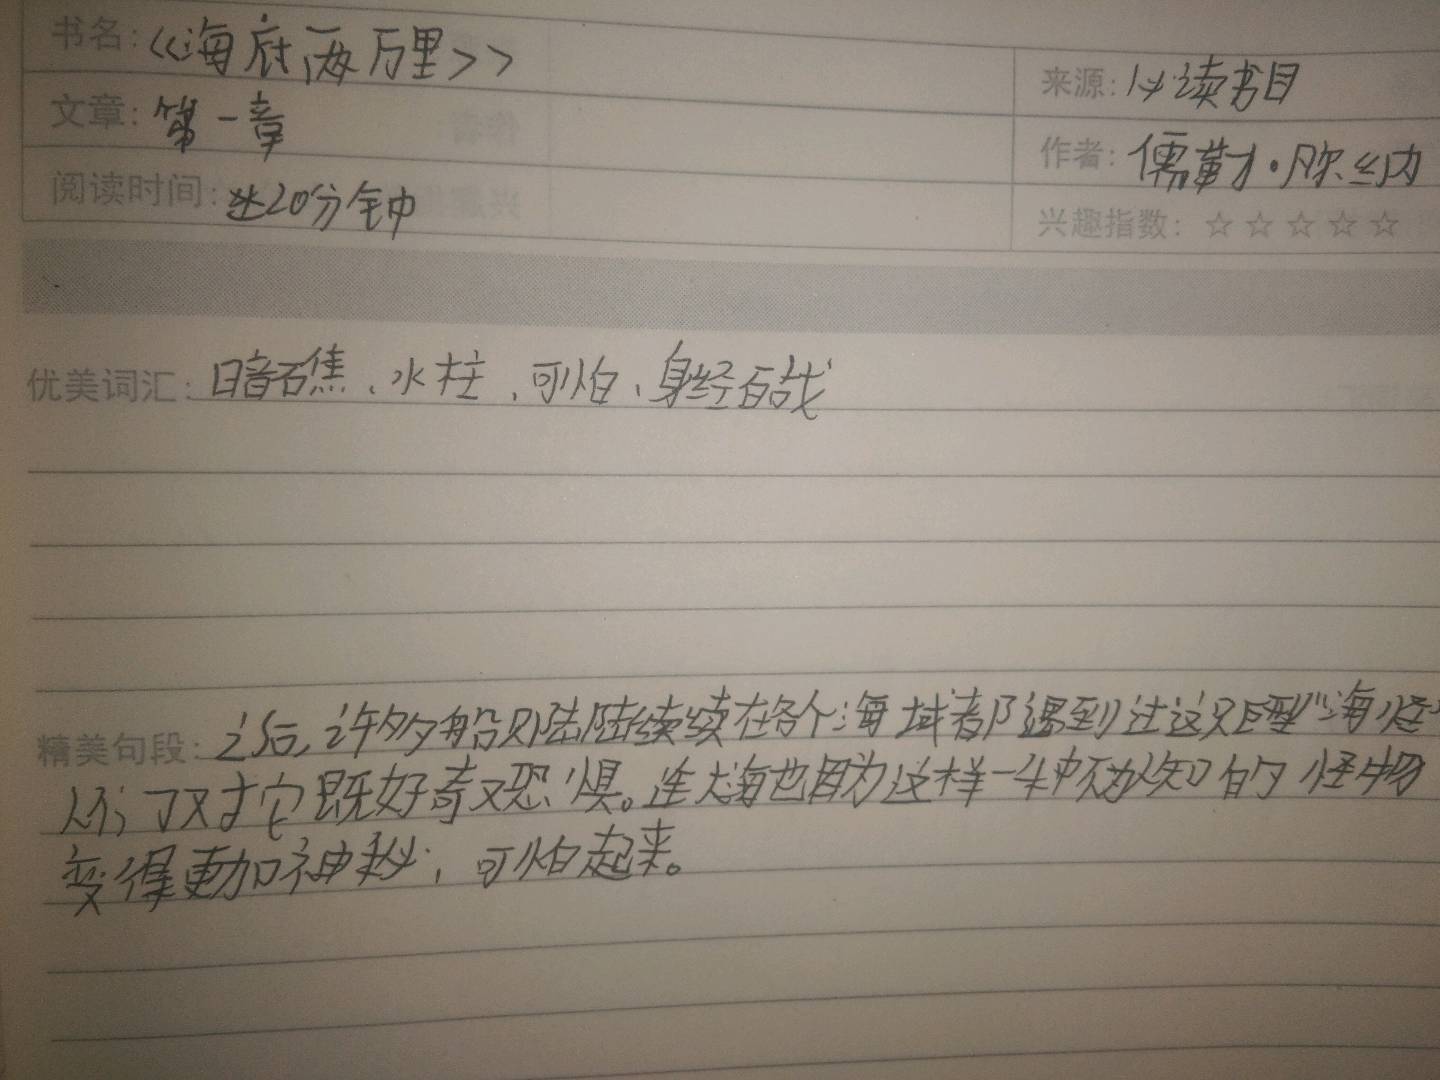 书名:《海底两万里》
来源:必读书目
文章:第一章
作者:儒勒·凡尔纳
阅读时间:20分钟
兴趣指数:☆☆☆☆☆
优美词汇:暗礁、水柱、可怕、身经百战
精美句段:之后,许多船只陆陆续续在各个海域都遇到过这只巨型"海怪"
人们对它既好奇又恐惧。连大海也因为这样一种不知的怪物
变得更加神秘,可怕起来。